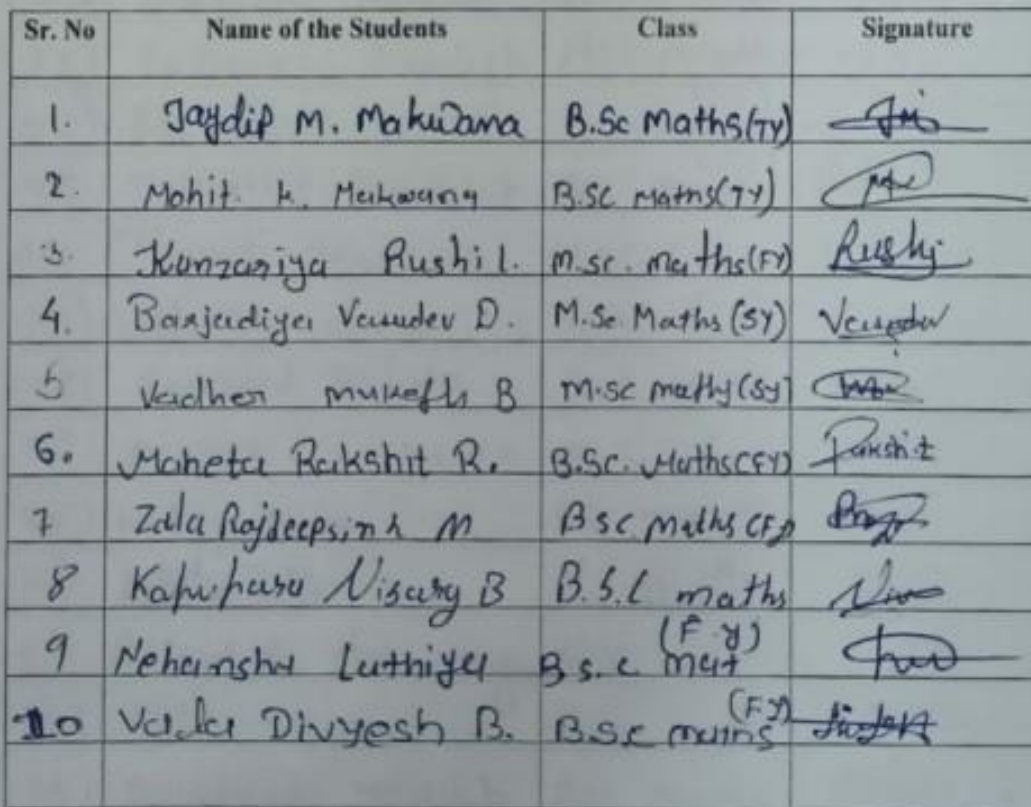 Sr. No Name of the Students Class Signature
1. Jaydip M. Makwana B.Sc Maths(TY)
2. Mohit k. Makwana B.SC Maths(TY)
3. Kanzariya Rushi l. M.sc. maths(FY) Rushi
4. Barjadiya Vasudev D. M.Sc. Maths (SY)
5 Vadher mukesh B M.sc maths (SY)
6. Maheta Rakshit R. B.Sc. Maths(FY) Rakshit
7 Zala Rajdeepsinh M BSC Maths (FY)
8 Nisarg B B.S.C maths
(F.Y)
9 Nehansha Luthiya B.s.c mat
(F.Y)
10 Vala Divyesh B. B.S.C maths